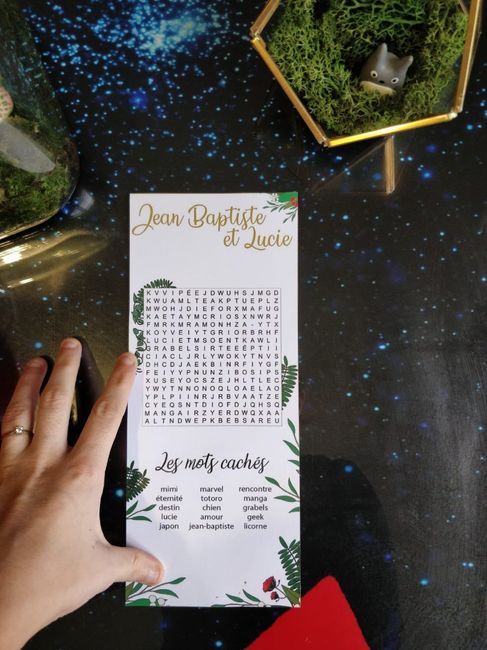 Jean Baptiste
et Lucie
K V V I P É E J D W U H S J M G D
K W U A M L T E A K P T U E P L Z
M W O H J D I E F O R X M A F U G
K A E T A Y M C R I O S X N W R J
F M R K M R A M O N H Z A - Y T X
K O Y V E I Y T G R I O R B R H F
L U C I E T M S O E N T K A W L I
G R A B E L S I R T E E É P T I I
C I A C L J R L Y W O K Y T N V S
D H C D J A E K B I N R F I Y G F
F E I Y Y P N U N Z I B O S I P S
X U S E Y O C S Z E J H L T L E C
Y W Y T N N O N O Q L O A E L A O
Y P L P I I N R J R B V A A T Z E
C Y E Q S N T D I O F D J Q H S Q
M A N G A I R Z Y E R D W Q X A A
A L T N D W E P K B E B S A R E U
Les mots cachés
mimi marvel rencontre
éternité totoro manga
destin chien grabels
lucie amour geek
japon jean-baptiste licorne